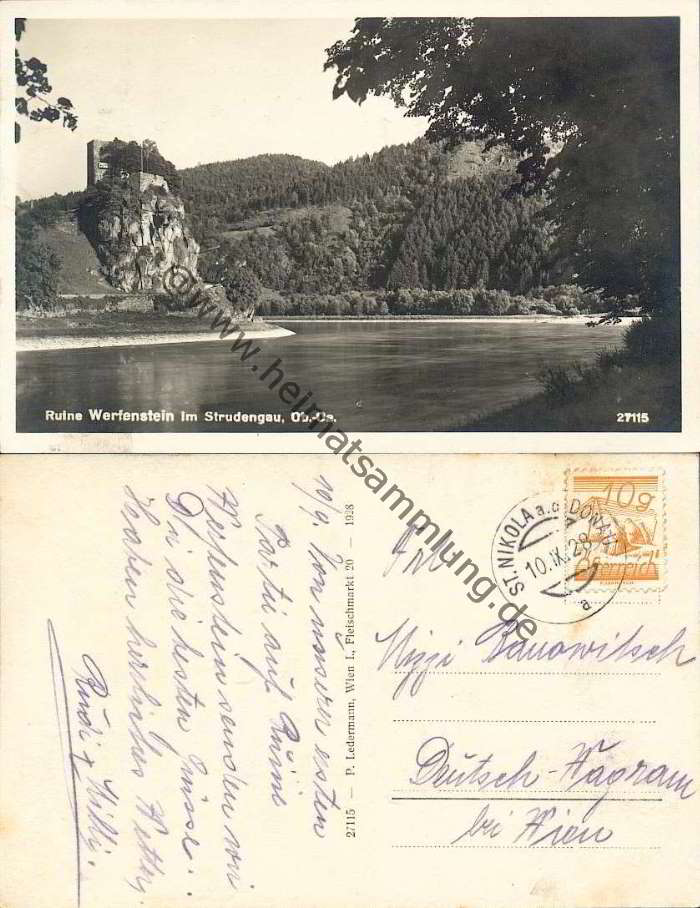 Ruine Werfenstein im Strudengau, Ob.-Oe.
27115
© www.heimatsammlung.de
10g
Österreich
ST. NIKOLA a. d. DONAU
10.IX.28
a
10/9. Von unsern ersten
Partii auf Ruine
Werfenstein senden wir
Dir die besten Grüsse.
Haben herrliches Wetter.
Rudi + Willi.
27115 — P. Ledermann, Wien I., Fleischmarkt 20 — 1928
Frl.
Mizzi Banowitsch
Deutsch-Wagram
bei Wien